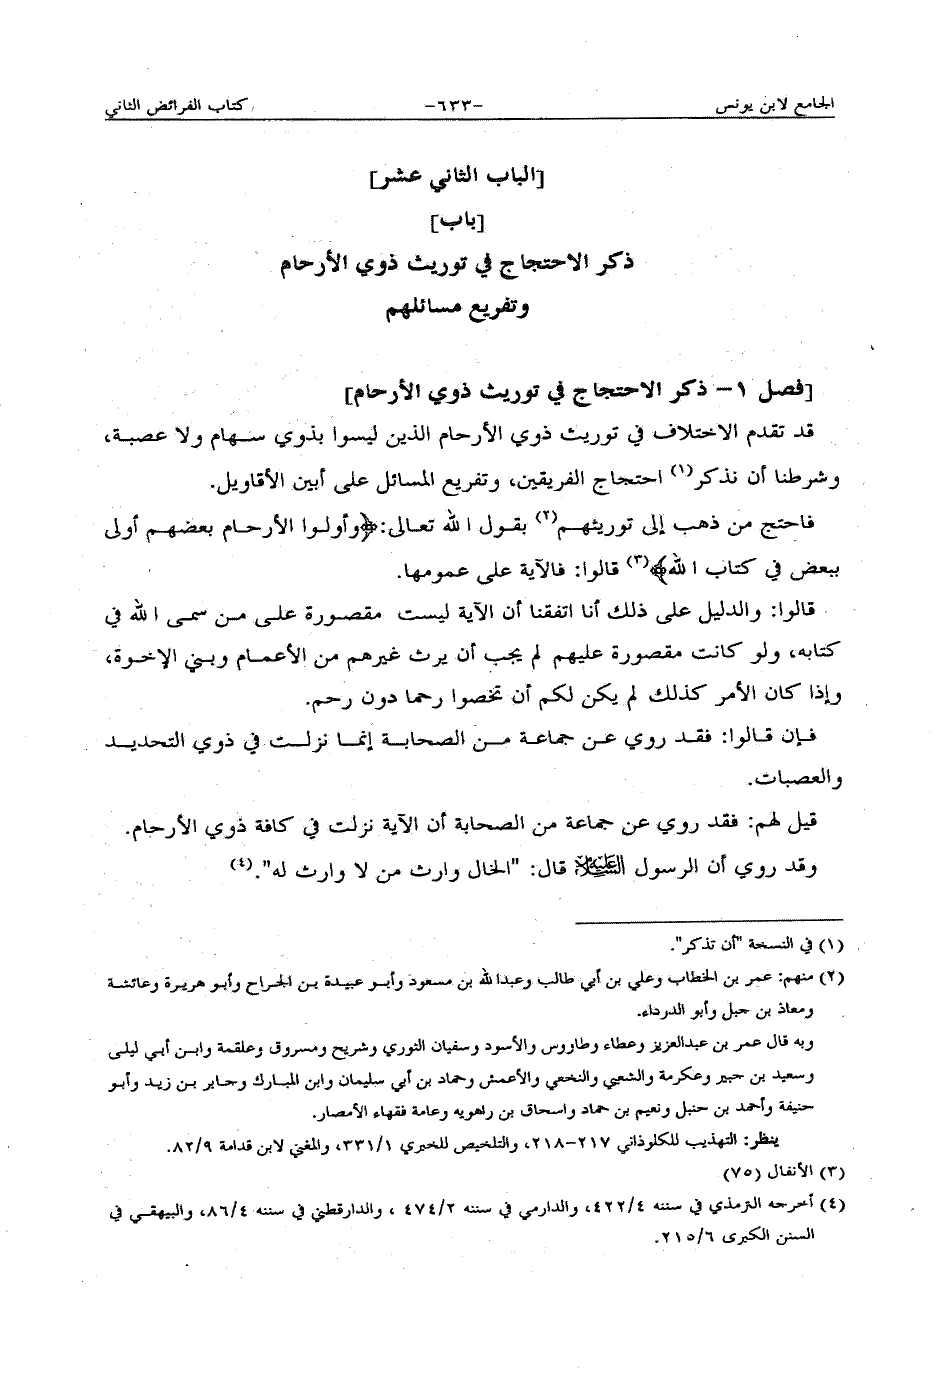 الجامع لابن يونس -٦٣٣- كتاب الفرائض الثاني
[الباب الثاني عشر]
[باب]
ذكر الاحتجاج في توريث ذوي الأرحام
وتفريع مسائلهم
[فصل ١- ذكر الاحتجاج في توريث ذوي الأرحام]
قد تقدم الاختلاف في توريث ذوي الأرحام الذين ليسوا بذوي سهام ولا عصبة،
وشرطنا أن نذكر(١) احتجاج الفريقين، وتفريع المسائل على أبين الأقاويل.
فاحتج من ذهب إلى توريثهم(٢) بقول الله تعالى: ﴿وأولوا الأرحام بعضهم أولى
ببعض في كتاب الله﴾(٣) قالوا: فالآية على عمومها.
قالوا: والدليل على ذلك أنا اتفقنا أن الآية ليست مقصورة على من سمى الله في
كتابه، ولو كانت مقصورة عليهم لم يجب أن يرث غيرهم من الأعمام وبني الإخوة،
وإذا كان الأمر كذلك لم يكن لكم أن تخصوا رحما دون رحم.
فإن قالوا: فقد روي عن جماعة من الصحابة إنما نزلت في ذوي التحديد
والعصبات.
قيل لهم: فقد روي عن جماعة من الصحابة أن الآية نزلت في كافة ذوي الأرحام.
وقد روي أن الرسول عليه السلام قال: "الخال وارث من لا وارث له".(٤)
(١) في النسخة "أن تذكر".
(٢) منهم: عمر بن الخطاب وعلي بن أبي طالب وعبدالله بن مسعود وأبو عبيدة بن الجراح وأبو هريرة وعائشة
ومعاذ بن جبل وأبو الدرداء.
وبه قال عمر بن عبدالعزيز وعطاء وطاروس والأسود وسفيان الثوري وشريح ومسروق وعلقمة وابن أبي ليلى
وسعيد بن جبير وعكرمة والشعبي والنخعي والأعمش وحماد بن أبي سليمان وابن المبارك وجابر بن زيد وأبو
حنيفة وأحمد بن حنبل ونعيم بن حماد واسحاق بن راهويه وعامة فقهاء الأمصار.
ينظر: التهذيب للكلوذاني ٢١٧-٢١٨، والتلخيص للخبري ٣٣١/١، والمغني لابن قدامة ٨٢/٩.
(٣) الأنفال (٧٥)
(٤) أخرجه الترمذي في سننه ٤٢٢/٤، والدارمي في سننه ٤٧٤/٢ ، والدارقطني في سننه ٨٦/٤، والبيهقي في
السنن الكبرى ٢١٥/٦.